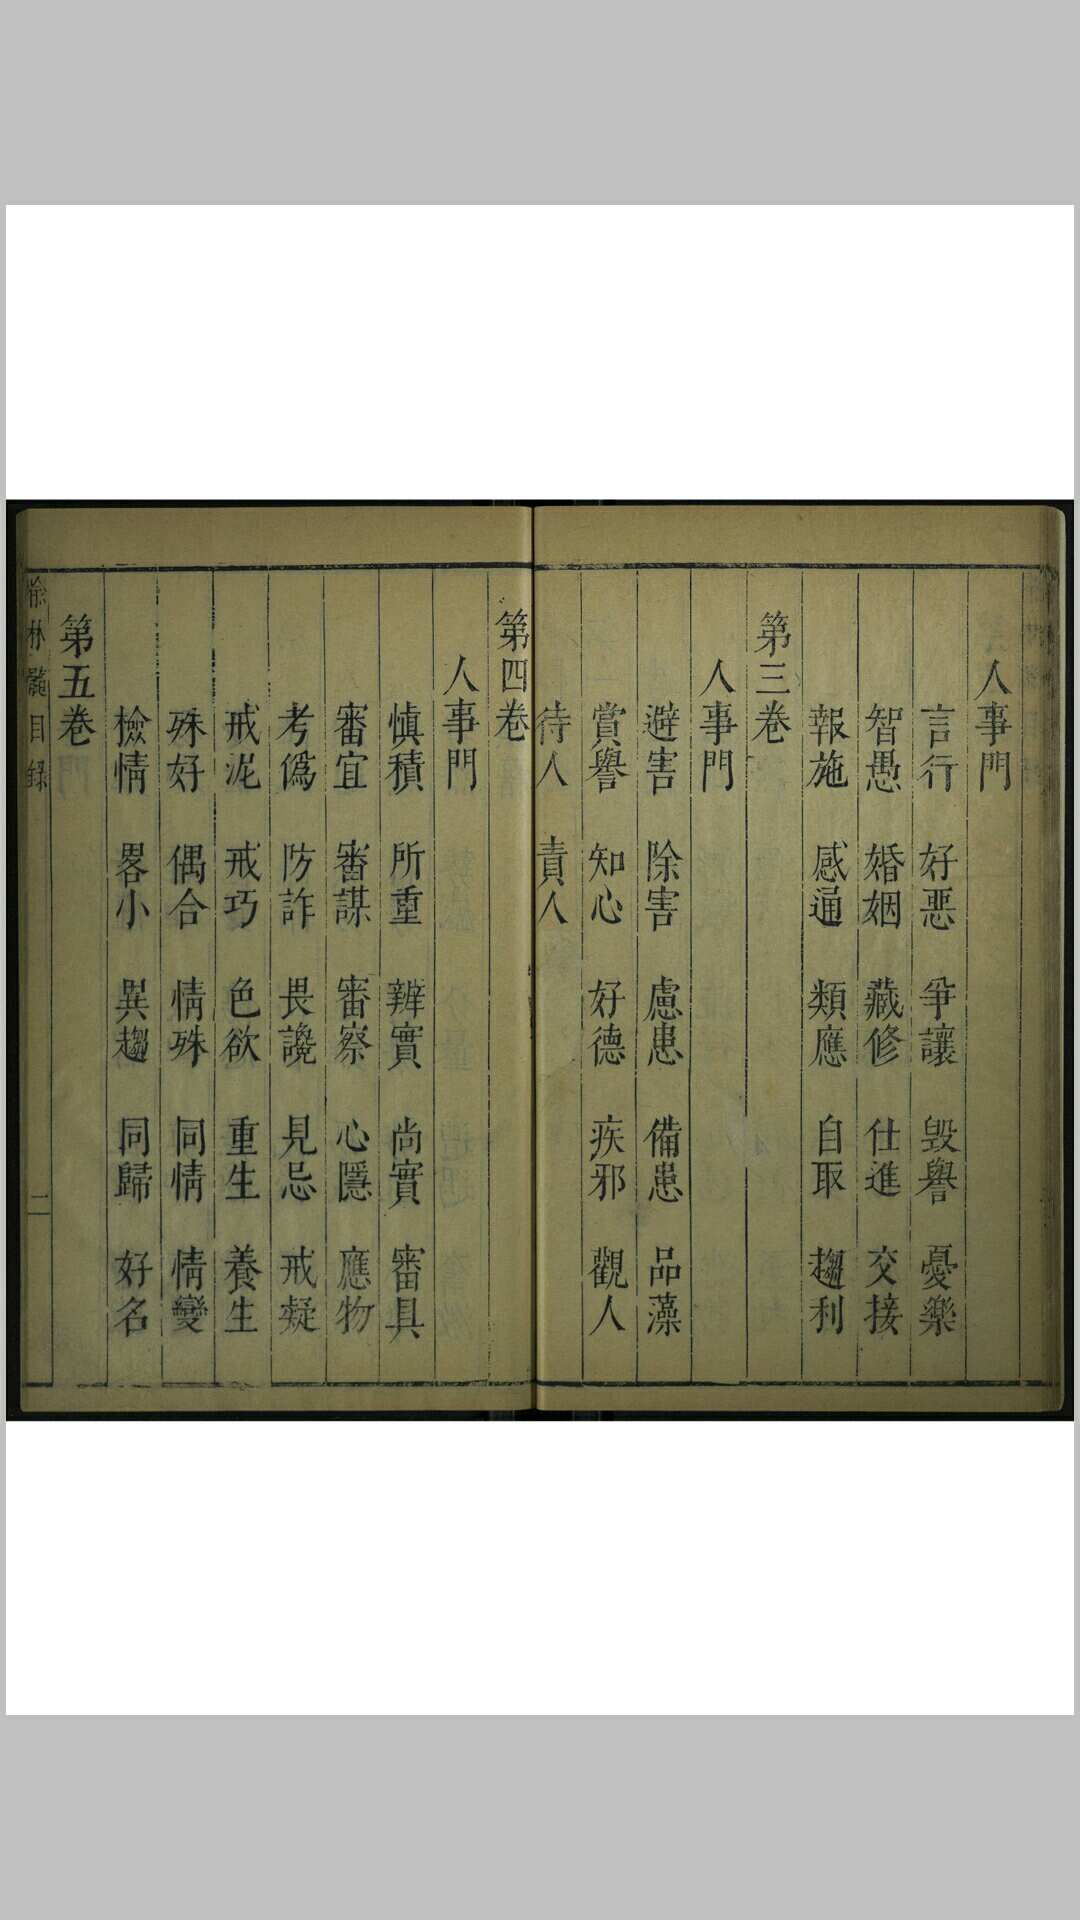 人事門
言行 好惡 爭讓 毁譽 憂樂
智愚 婚姻 藏修 仕進 交接
報施 感通 類應 自取 趨利
第三卷
人事門
避害 除害 慮患 備患 品藻
賞譽 知心 好德 疾邪 觀人
待人 責人
第四卷
人事門
慎積 所重 辨實 尚實 審具
審宜 審謀 審察 心隱 應物
考僞 防詐 畏讒 見忌 戒疑
戒泥 戒巧 色欲 重生 養生
殊好 偶合 情殊 同情 情變
檢情 畧小 異趨 同歸 好名
第五卷
目錄 二